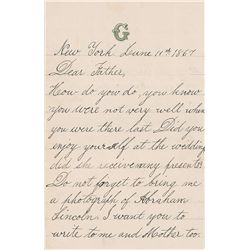 G
New York June 11th 1867
Dear Father,
How do you do, you know
you were not very well when
you were there last Did you
enjoy yourself at the wedding
did she receive any presents
Do not forget to bring me
a photograph of Abraham
Lincoln. I want you to
write to me and Mother too.